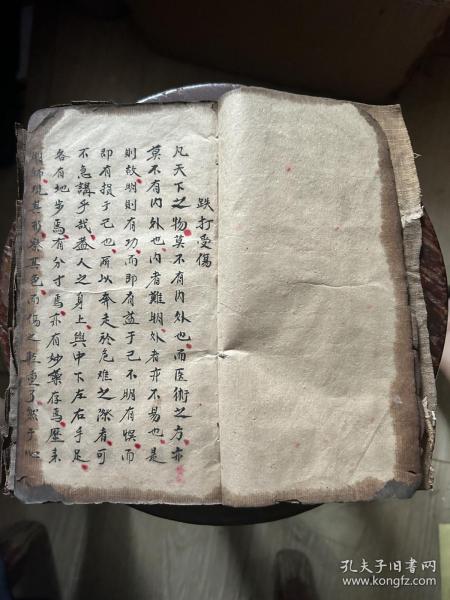 跌打受傷
凡天下之物莫不有内外也而医術之方亦
莫不有内外也内者難明外者亦不易也是
則故明則有功而即有益于己不明有悞而
即有損于己也所以奔走於危难之際者可
不急講乎哉蓋人之身上與中下左右手足
各有地步焉有分寸焉亦有妙藥存焉歷来
明師視其形察其色而傷之輕重了然于心
孔夫子旧书网
www.kongfz.com